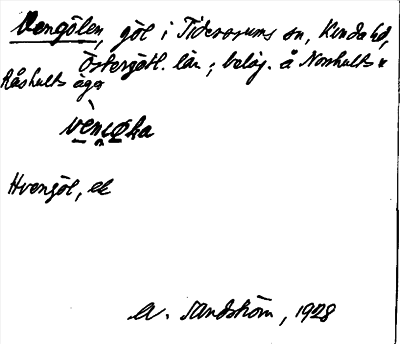 Vengölen, göl i Tidersrums sn, Kinda hd,
Östergötl. län; beläg. å Norshults o
Råshults ägor
Hvengöl, ek
A. Sandström, 1928